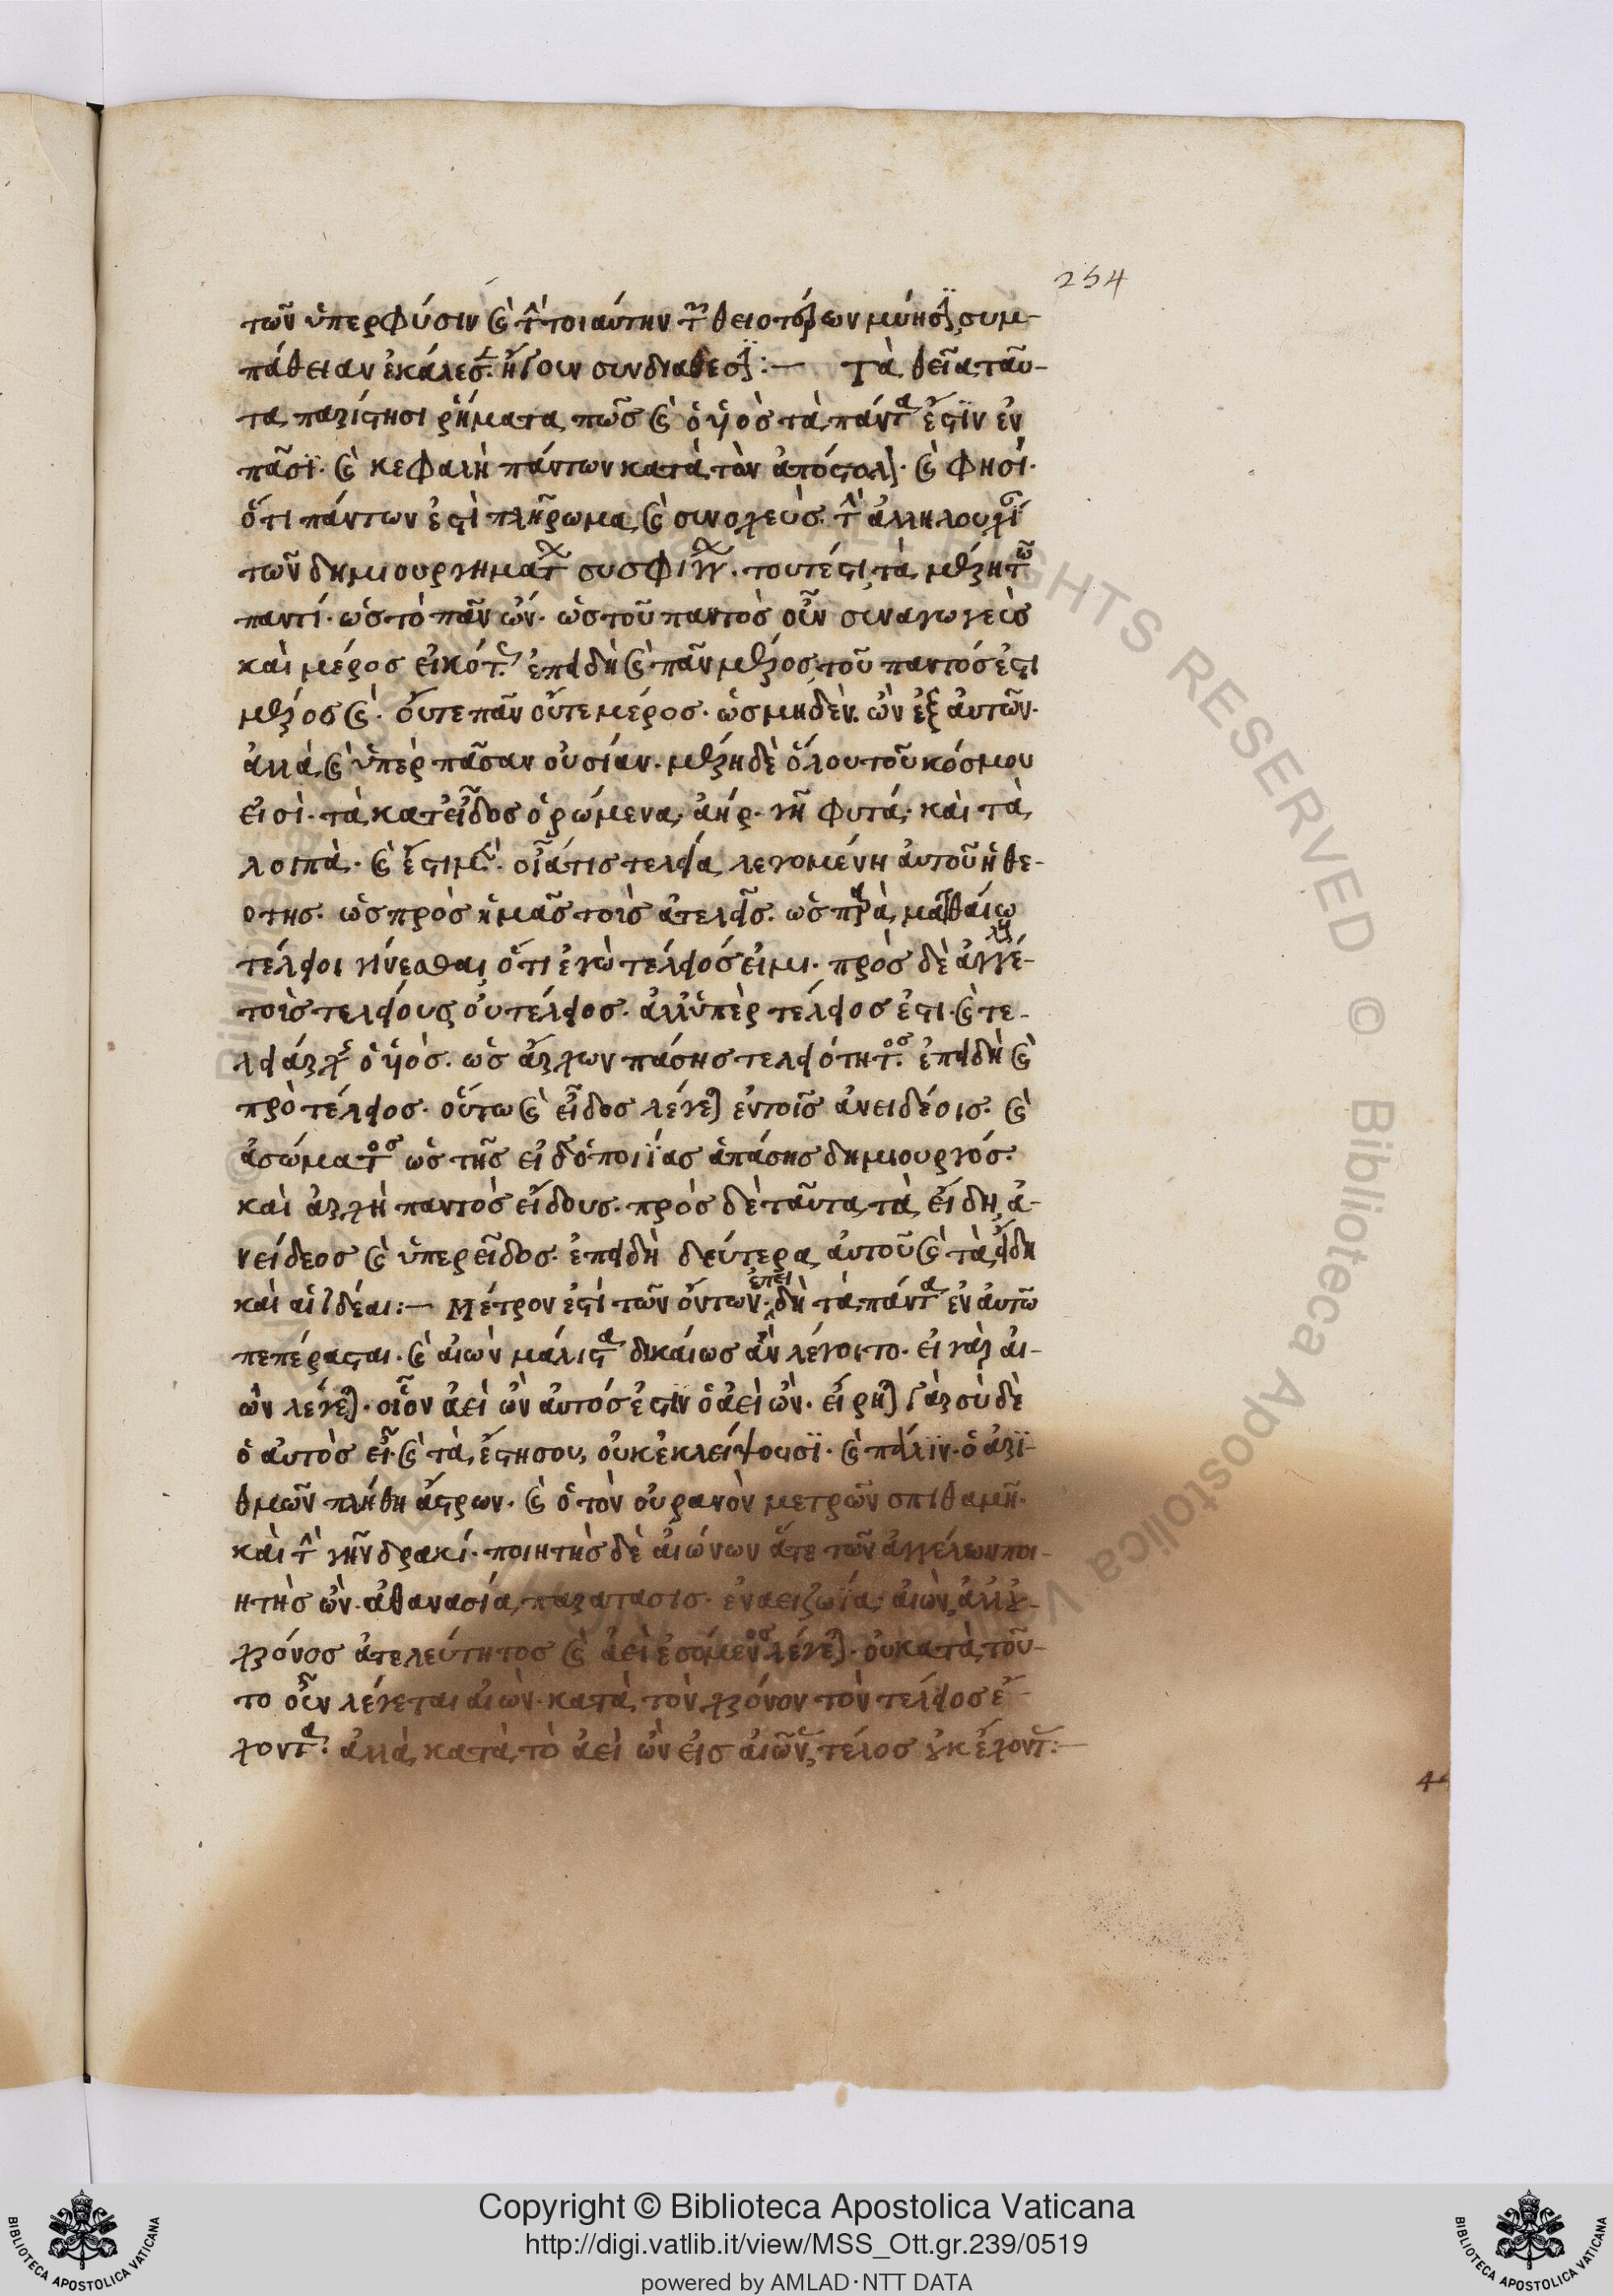 254
τῶν ὑπερφύσιν καὶ τὴν τοιαύτην τῶν θειοτέρων μύησιν, συμ-
πάθειαν ἐκάλεσεν. ἤγουν συνδιάθεσιν:— Τὰ θεῖα ταῦ-
τα παρίστησι ῥήματα, πῶς καὶ ὁ υἱὸς τὰ πάντα ἐστὶν ἐν
πᾶσι. καὶ κεφαλὴ πάντων κατὰ τὸν ἀπόστολον. καὶ φησί.
ὅτι πάντων ἐστὶ πλήρωμα, καὶ συνοχεὺς. τὴν ἀλληλουχίαν
τῶν δημιουργημάτων συσφίγγων. τουτέστι, τὰ μέρη τῶ
παντί. ὡς τὸ πᾶν ὤν. ὡς τοῦ παντὸς οὖν συναγωγεὺς
καὶ μέρος εἰκότως. ἐπειδὴ καὶ πᾶν μέρος τοῦ παντός ἐστι
μέρος καὶ. οὔτε πᾶν οὔτε μέρος. ὡς μηδὲν ὢν ἐξ αὐτῶν.
ἀλλὰ καὶ ὑπὲρ πᾶσαν οὐσίαν. μέρη δὲ ὅλου τοῦ κόσμου
εἰσὶ. τὰ κατ' εἶδος ὁρώμενα, ἀήρ. γῆ φυτά. καὶ τὰ
λοιπὰ. καὶ ἔστι μὲν. οἷά τις τελεία λεγομένη αὐτοῦ ἡ θε-
ότης. ὡς πρὸς ἡμᾶς τοὺς ἀτελεῖς. ὡς παρὰ ματθαίω
τέλειοι γίνεσθαι ὅτι ἐγὼ τέλειός εἰμι. πρὸς δὲ ἀγγέ-
λους
τοὺς τελείους οὐ τέλειος. ἀλλ' ὑπὲρ τέλειος ἐστι. καὶ τε-
λειάρχης ὁ υἱὸς. ὡς ἄρχων πάσης τελειότητος. ἐπειδὴ καὶ
πρὸ τέλειος. οὕτω καὶ εἶδος λέγεται ἐν τοῖς ἀνειδέοις. καὶ
ἀσώματος ὡς τῆς εἰδοποιΐας ἁπάσης δημιουργός.
καὶ ἀρχὴ παντὸς εἴδους. πρὸς δὲ ταῦτα τὰ εἴδη, ἀ-
νείδεος καὶ ὑπερεῖδος. ἐπειδὴ δεύτερα αὐτοῦ καὶ τὰ εἴδη
καὶ αἱ ἰδέαι:— Μέτρον ἐστὶ τῶν ὄντων. ἐπειδὴ τὰ πάντα ἐν αὐτῶ
πεπέρασται. καὶ αἰὼν μάλιστα δικαίως ἂν λέγοιτο. εἰ γὰρ αἰ-
ὼν λέγεται. οἷον ἀεὶ ὢν αὐτός ἐστιν ὁ ἀεὶ ὤν. εἴρηται γὰρ σὺ δὲ
ὁ αὐτὸς εἶ. καὶ τὰ ἔτη σου, οὐκ ἐκλείψουσι. καὶ πάλιν. ὁ ἀρι-
θμῶν πλήθη ἄστρων. καὶ ὁ τὸν οὐρανὸν μετρῶν σπιθαμῆ.
καὶ τὴν γῆν δρακί. ποιητὴς δὲ αἰώνων ἅτε τῶν ἀγγέλων ποι-
ητὴς ὢν. ἀθανασία, παράτασις. ἐν ἀειζωία, αἰὼν, ἀλλ' οὐ
χρόνος ἀτελεύτητος καὶ ἀεὶ ἐσόμενος λέγεται. οὐ κατὰ τοῦ-
το οὖν λέγεται αἰὼν. κατὰ τὸν χρόνον τὸν τέλειος ἔ-
χοντα. ἀλλὰ κατὰ τὸ ἀεὶ ὢν εἰς αἰῶνας τέλος οὐκ ἔχοντας:—
Copyright © Biblioteca Apostolica Vaticana
http://digi.vatlib.it/view/MSS_Ott.gr.239/0519
powered by AMLAD·NTT DATA